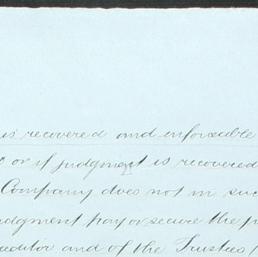 is recovered and enforceable
or if judgment is recovered
Company does not in such
judgment pay or secure the p
creditor and of the Trustees